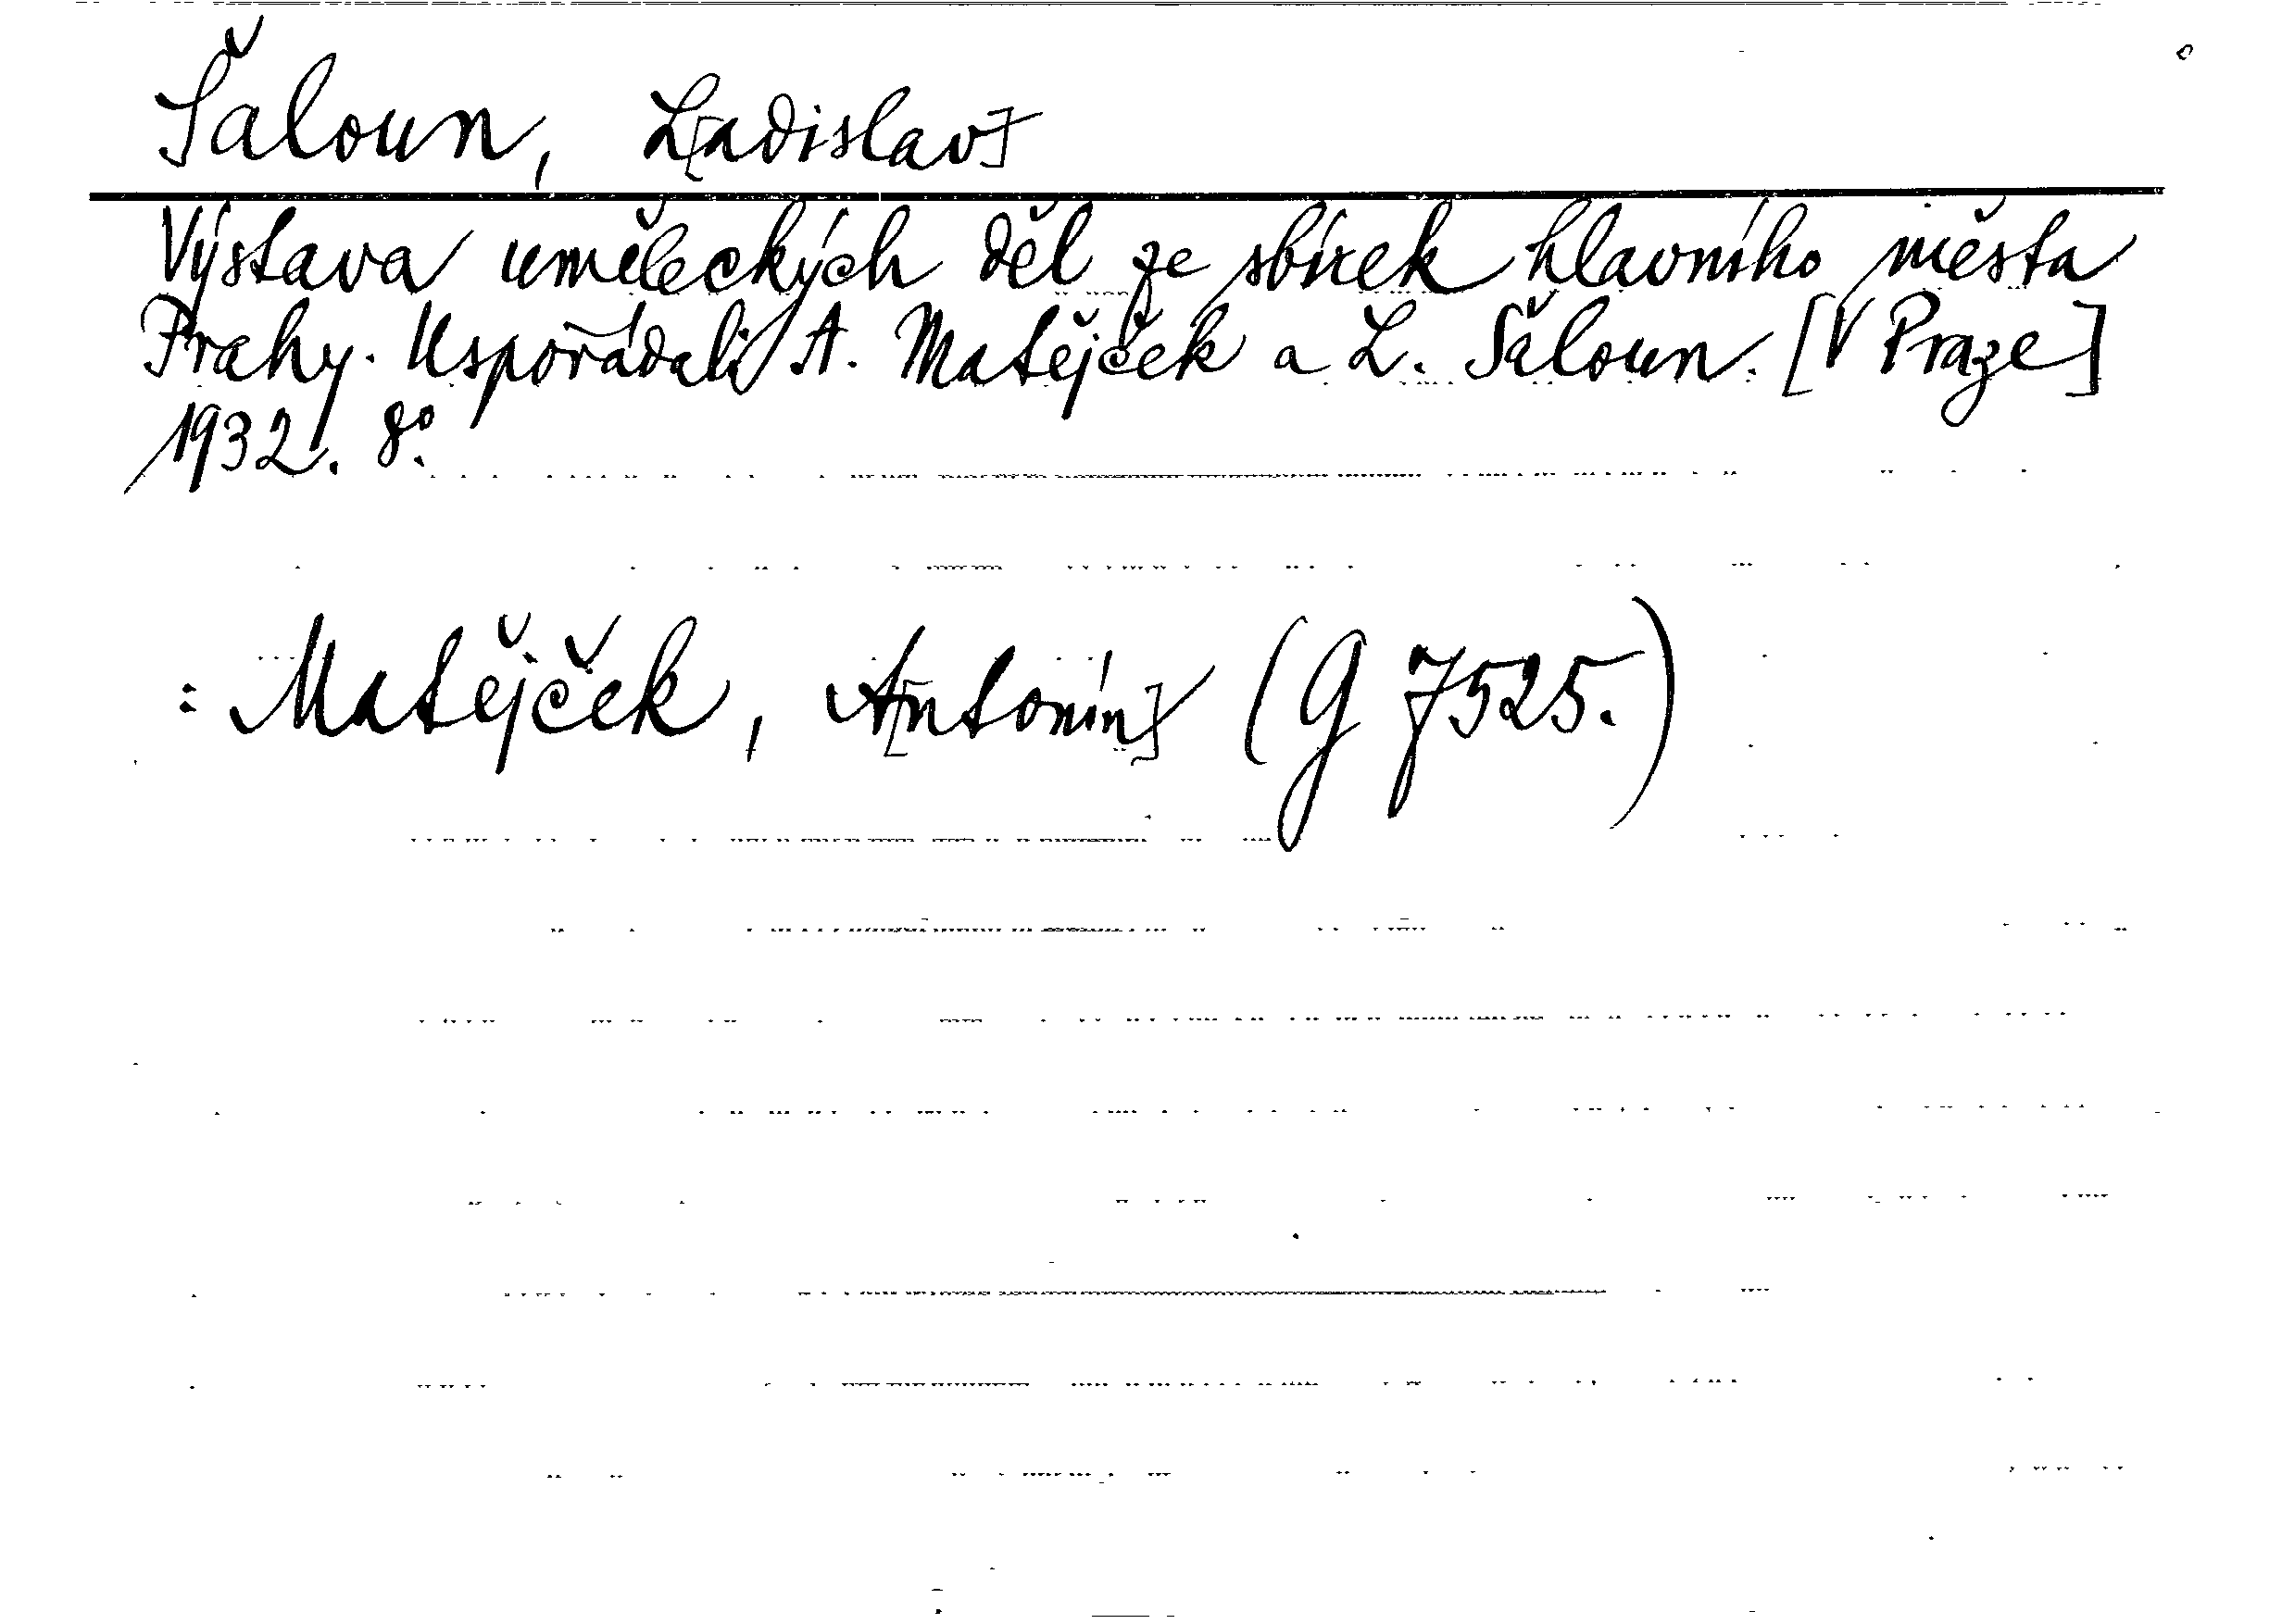 Šaloun, L[adislav]
Výstava uměleckých děl ze sbírek hlavního města
Prahy. Uspořádali A. Matějček a L. Šaloun. [V Praze]
1932. 8°.
: Matějček, A[ntonín] (G 7525.)